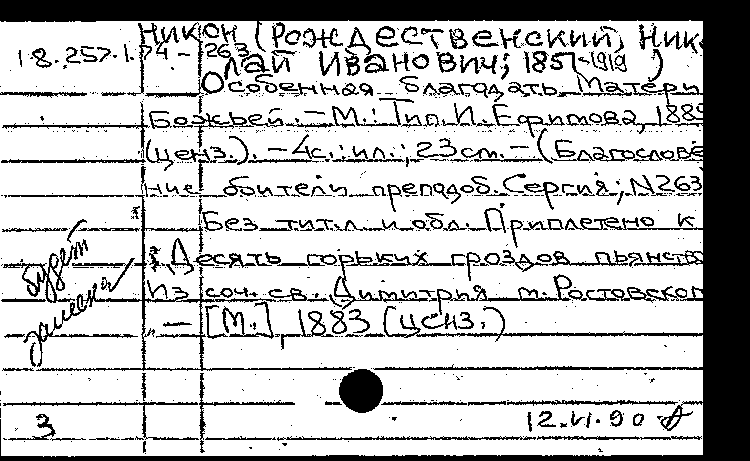 Никон (Рождественский, Нико
18.257.1.74-263
лай Иванович; 1851-1919)
Особенная благодать Матери
Божьей. - М.: Тип. И. Ефимова, 1889
(ценз.). - 4с.: ил.; 23 см. - (Благослове
ние обители преподоб. Сергия; N263
Без тит.л и обл. Приплетено к
: Десять горьких гроздов пьянство
Из соч. св. Димитрия м. Ростовског
. - [М.], 1883 (ценз.)
будет
замена
3
12.VI.90